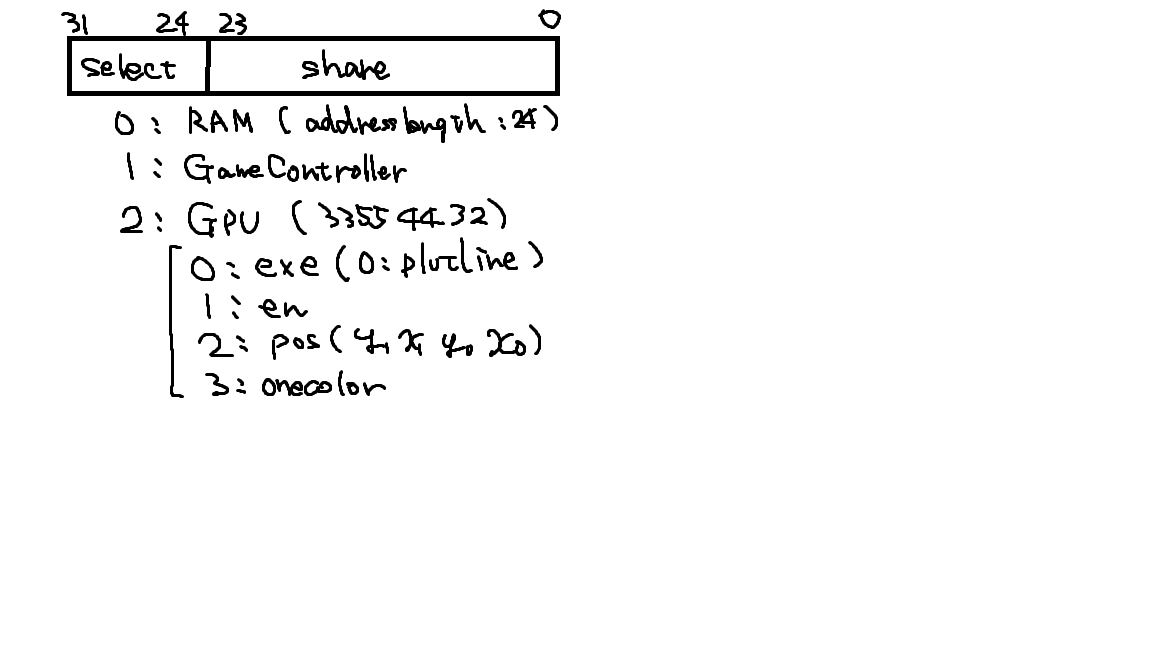 31 24 23 0
select share
0: RAM (addresslength:24)
1: GameController
2: GPU (33554432)
0: exe (0: plotline)
1: en
2: pos (y₁ x₁ y₀ x₀)
3: onecolor